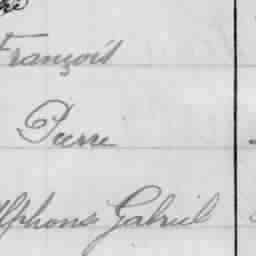 François
Pierre
Alphons Gabriel